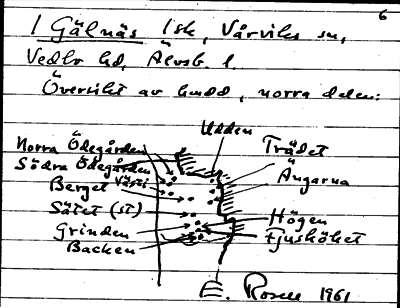 6
I Gälnäs 1sk, Vårviks sn,
Vedbo hd, Älvsb. l.
Översikt av kmdd, norra delen:
Udden
Norra Ödegården
Södra Ödegården
Berget Västö
Sätet (st)
Grinden
Backen
Trädet
Ängarna
Högen
Fjusköbet
E. Rosell 1961